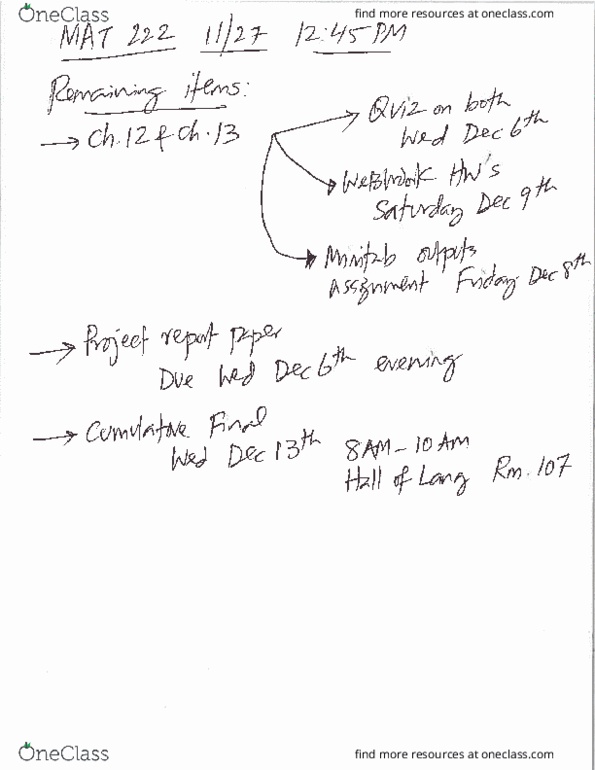 OneClass
find more resources at oneclass.com
MAT 222 11/27 12:45 PM
Remaining items:
→ Ch.12 & Ch.13
Quiz on both
Wed Dec 6th
WebWork HW's
Saturday Dec 9th
Minitab outputs
Assignment Friday Dec 8th
→ Project report paper
Due Wed Dec 6th evening
→ Cumulative Final
Wed Dec 13th 8AM – 10AM
Hall of Lang Rm. 107
OneClass
find more resources at oneclass.com